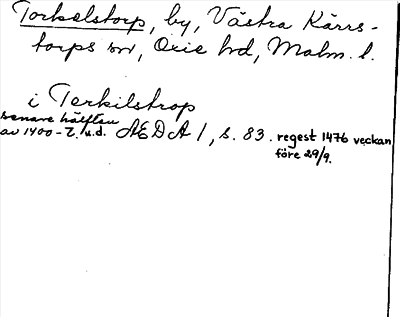 Torkelstorp, by, Västra Kärrs-
torps sn, Oxie hd, Malm. l.
i Terkilstrop
senare hälften
av 1400-t. u.d. AEDA 1, s. 83. regest 1476 veckan
före 29/9.